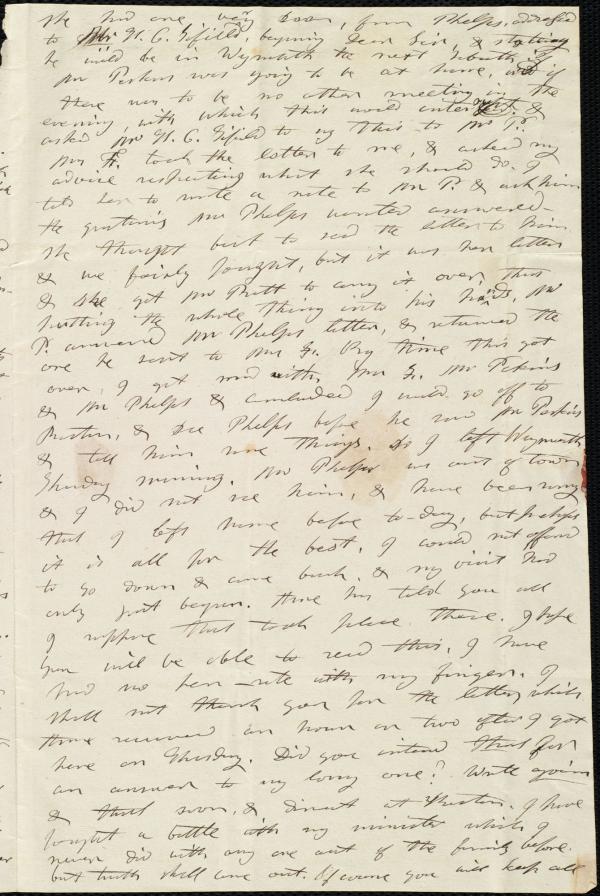 she had one very soon, from Phelps, addressed
to Mr H. C. Fifield, beginning Dear Sir, & stating
he would be in Weymouth the next Sabbath if
Mr Perkins was going to be at home, and if
there was to be no other meeting in the
evening with which this would interfere &
asked Mr H. C. Fifield to say this to Mr P.
Mrs F. took the letter to me, & asked my
advice respecting what she should do. I
told her to write a note to Mr P. & ask him
the questions Mr Phelps wanted answered.
She thought best to send the letter to him
& we fairly fought, but it was her letter
& she got Mr Pratt to carry it over, thus
putting the whole thing into his hands, Mr
P. answered Mr Phelps letter, & returned the
one he sent to Mrs F. By time this got
over, I got mad with Mrs F. Mr Perkins
& Mr Phelps & concluded I would go off to
Boston, & see Phelps before he saw Mr Perkins
& tell him some things. So I left Weymouth
Thursday morning. Mr Phelps was out of town
& I did not see him, & have been sorry
that I left home before to-day, but perhaps
it is all for the best. I could not afford
to go down & come back, & my visit had
only just begun. Anne has told you all
I suppose that took place there. I hope
you will be able to read this. I have
had no pen – wrote with my fingers. I
shall not thank you for the letter which
Anne received an hour or two after I got
here on Thursday. Did you intend that for
an answer to my long one? Write again
& that soon, & direct at Boston. I have
fought a battle with my minister which I
never did with any one out of the family before.
but truth shall come out. Of course you will keep all